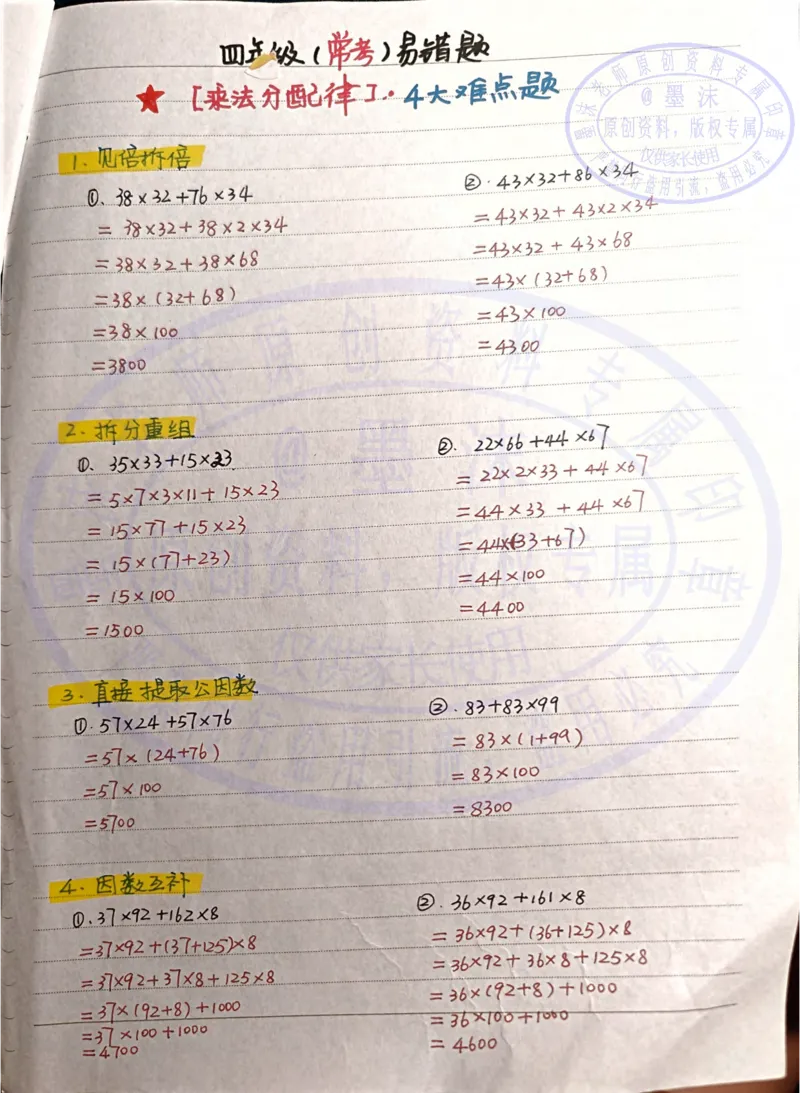 四年级(常考)易错题
★ [乘法分配律]·4大难点题
墨沫老师原创资料专属印章
@墨沫
原创资料,版权专属
仅供家长使用
1、见倍拆倍
①、38×32+76×34
= 38×32+38×2×34
=38×32+38×68
=38×(32+68)
=38×100
=3800
②.43×32+86×34
=43×32+43×2×34
=43×32+43×68
=43×(32+68)
=43×100
=4300
2.拆分重组
①、35×33+15×23
=5×7×3×11+15×23
=15×77+15×23
=15×(77+23)
=15×100
=1500
②.22×66+44×67
=22×2×33+44×67
=44×33+44×67
=44×(33+67)
=44×100
=4400
3.直接提取公因数
①.57×24+57×76
=57×(24+76)
=57×100
=5700
②.83+83×99
=83×(1+99)
=83×100
=8300
4.因数互补
①.37×92+162×8
=37×92+(37+125)×8
=37×92+37×8+125×8
=37×(92+8)+1000
=37×100+1000
=4700
②.36×92+161×8
=36×92+(36+125)×8
=36×92+36×8+125×8
=36×(92+8)+1000
=36×100+1000
=4600